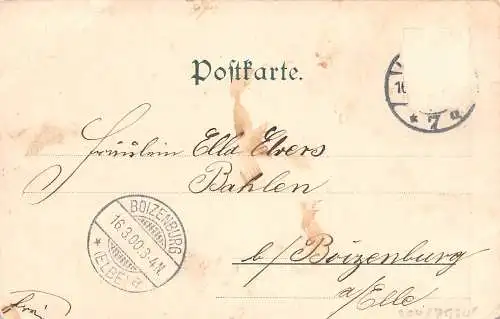 Postkarte.
16
* 7 a
Fräulein Ella Elvers
Bahlen
b/Boizenburg
a/Elbe.
BOIZENBURG
16.3.00.3-4N.
* (ELBE) a
frei